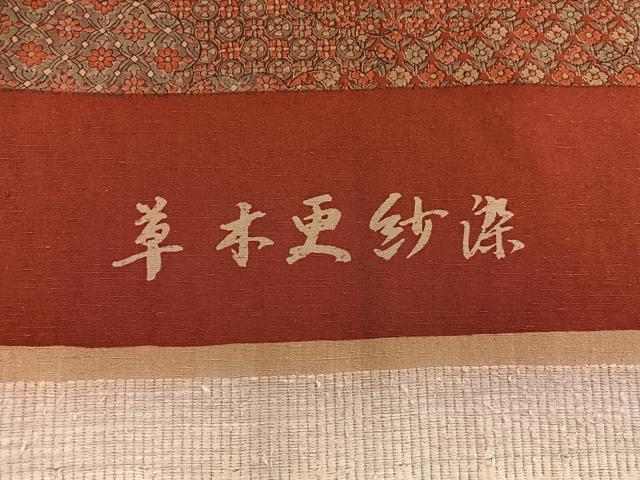 草木更紗染